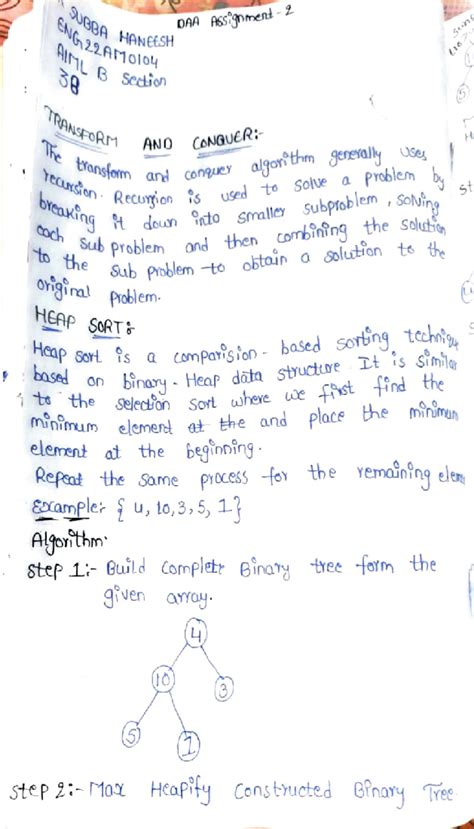 SUBBA MANEESH
DAA Assignment-2
ENG22AM0104
AIML B Section
38
TRANSFORM AND CONQUER:-
The transform and conquer algorithm generally uses
recursion. Recursion is used to solve a problem by
breaking it down into smaller subproblem, solving
each sub problem and then combining the solution
to the sub problem to obtain a solution to the
original problem.
HEAP SORT:-
Heap sort is a comparision-based sorting technique
based on binary-Heap data structure. It is similar
to the selection sort where we first find the
minimum element at the and place the minimum
element at the beginning.
Repeat the same process for the remaining elem
Example:- { 4, 10, 3, 5, 1}
Algorithm:
step 1:- Build Complete Binary tree form the
given array.
4
10
3
5
1
step 2:- Max Heapify Constructed Binary Tree.